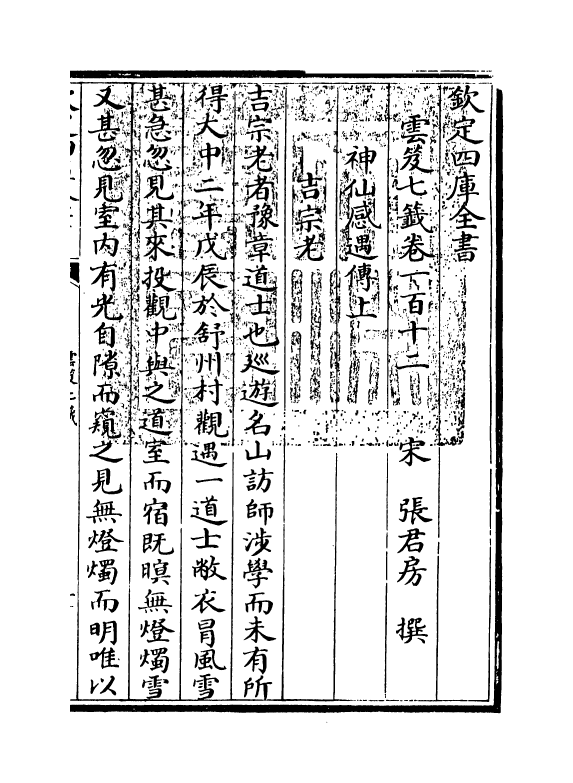 欽定四庫全書
雲笈七籤卷一百十二　宋　張君房　撰
神仙感遇傳上
吉宗老
吉宗老者豫章道士也巡遊名山訪師涉學而未有所
得大中二年戊辰於舒州村觀遇一道士敝衣冐風雪
甚急忽見其來投觀中與之道室而宿既暝無燈燭雪
又甚忽見室内有光自隙而窺之見無燈燭而明唯以